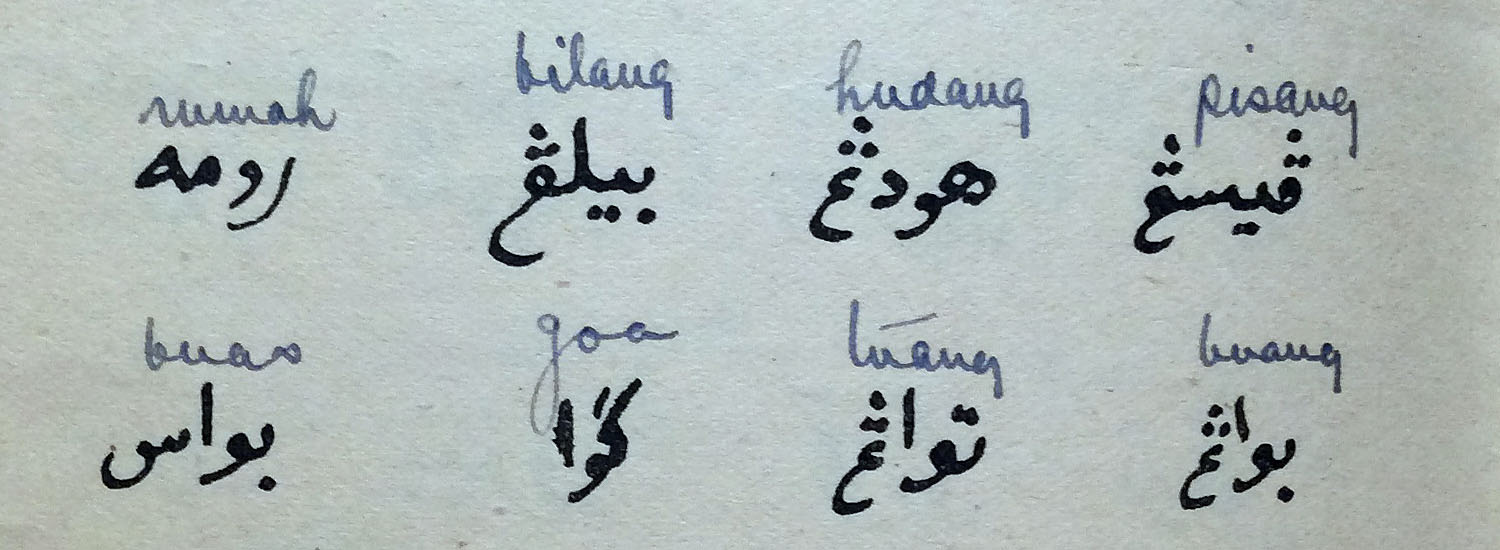 rumah bilang hudang pisang
ڤيسڠ هودڠ بيلڠ رومه
buas goa tuang buang
بواڠ تواڠ گوا بواس